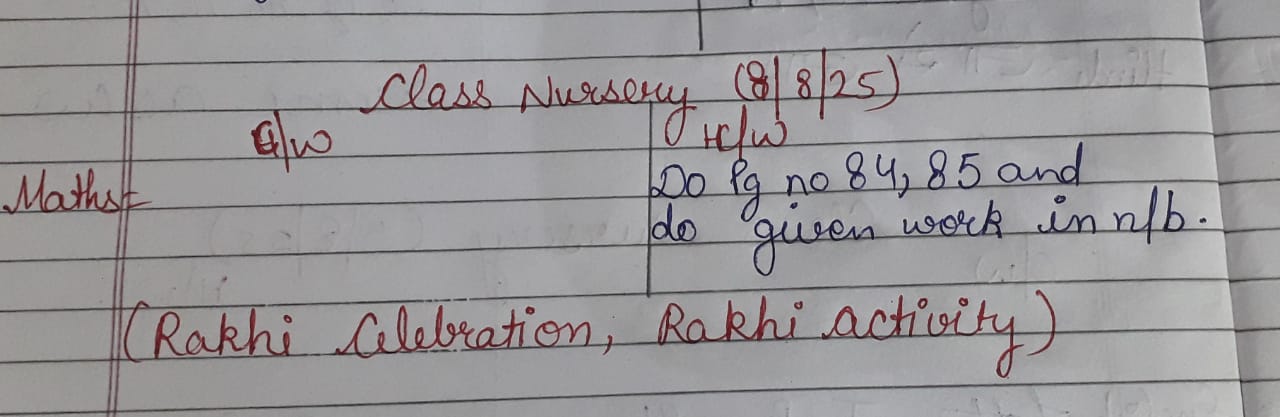 Class Nursery (8/8/25)
C/w H/w
Maths Do Pg no 84, 85 and
do given work in n/b.
(Rakhi Celebration, Rakhi activity)